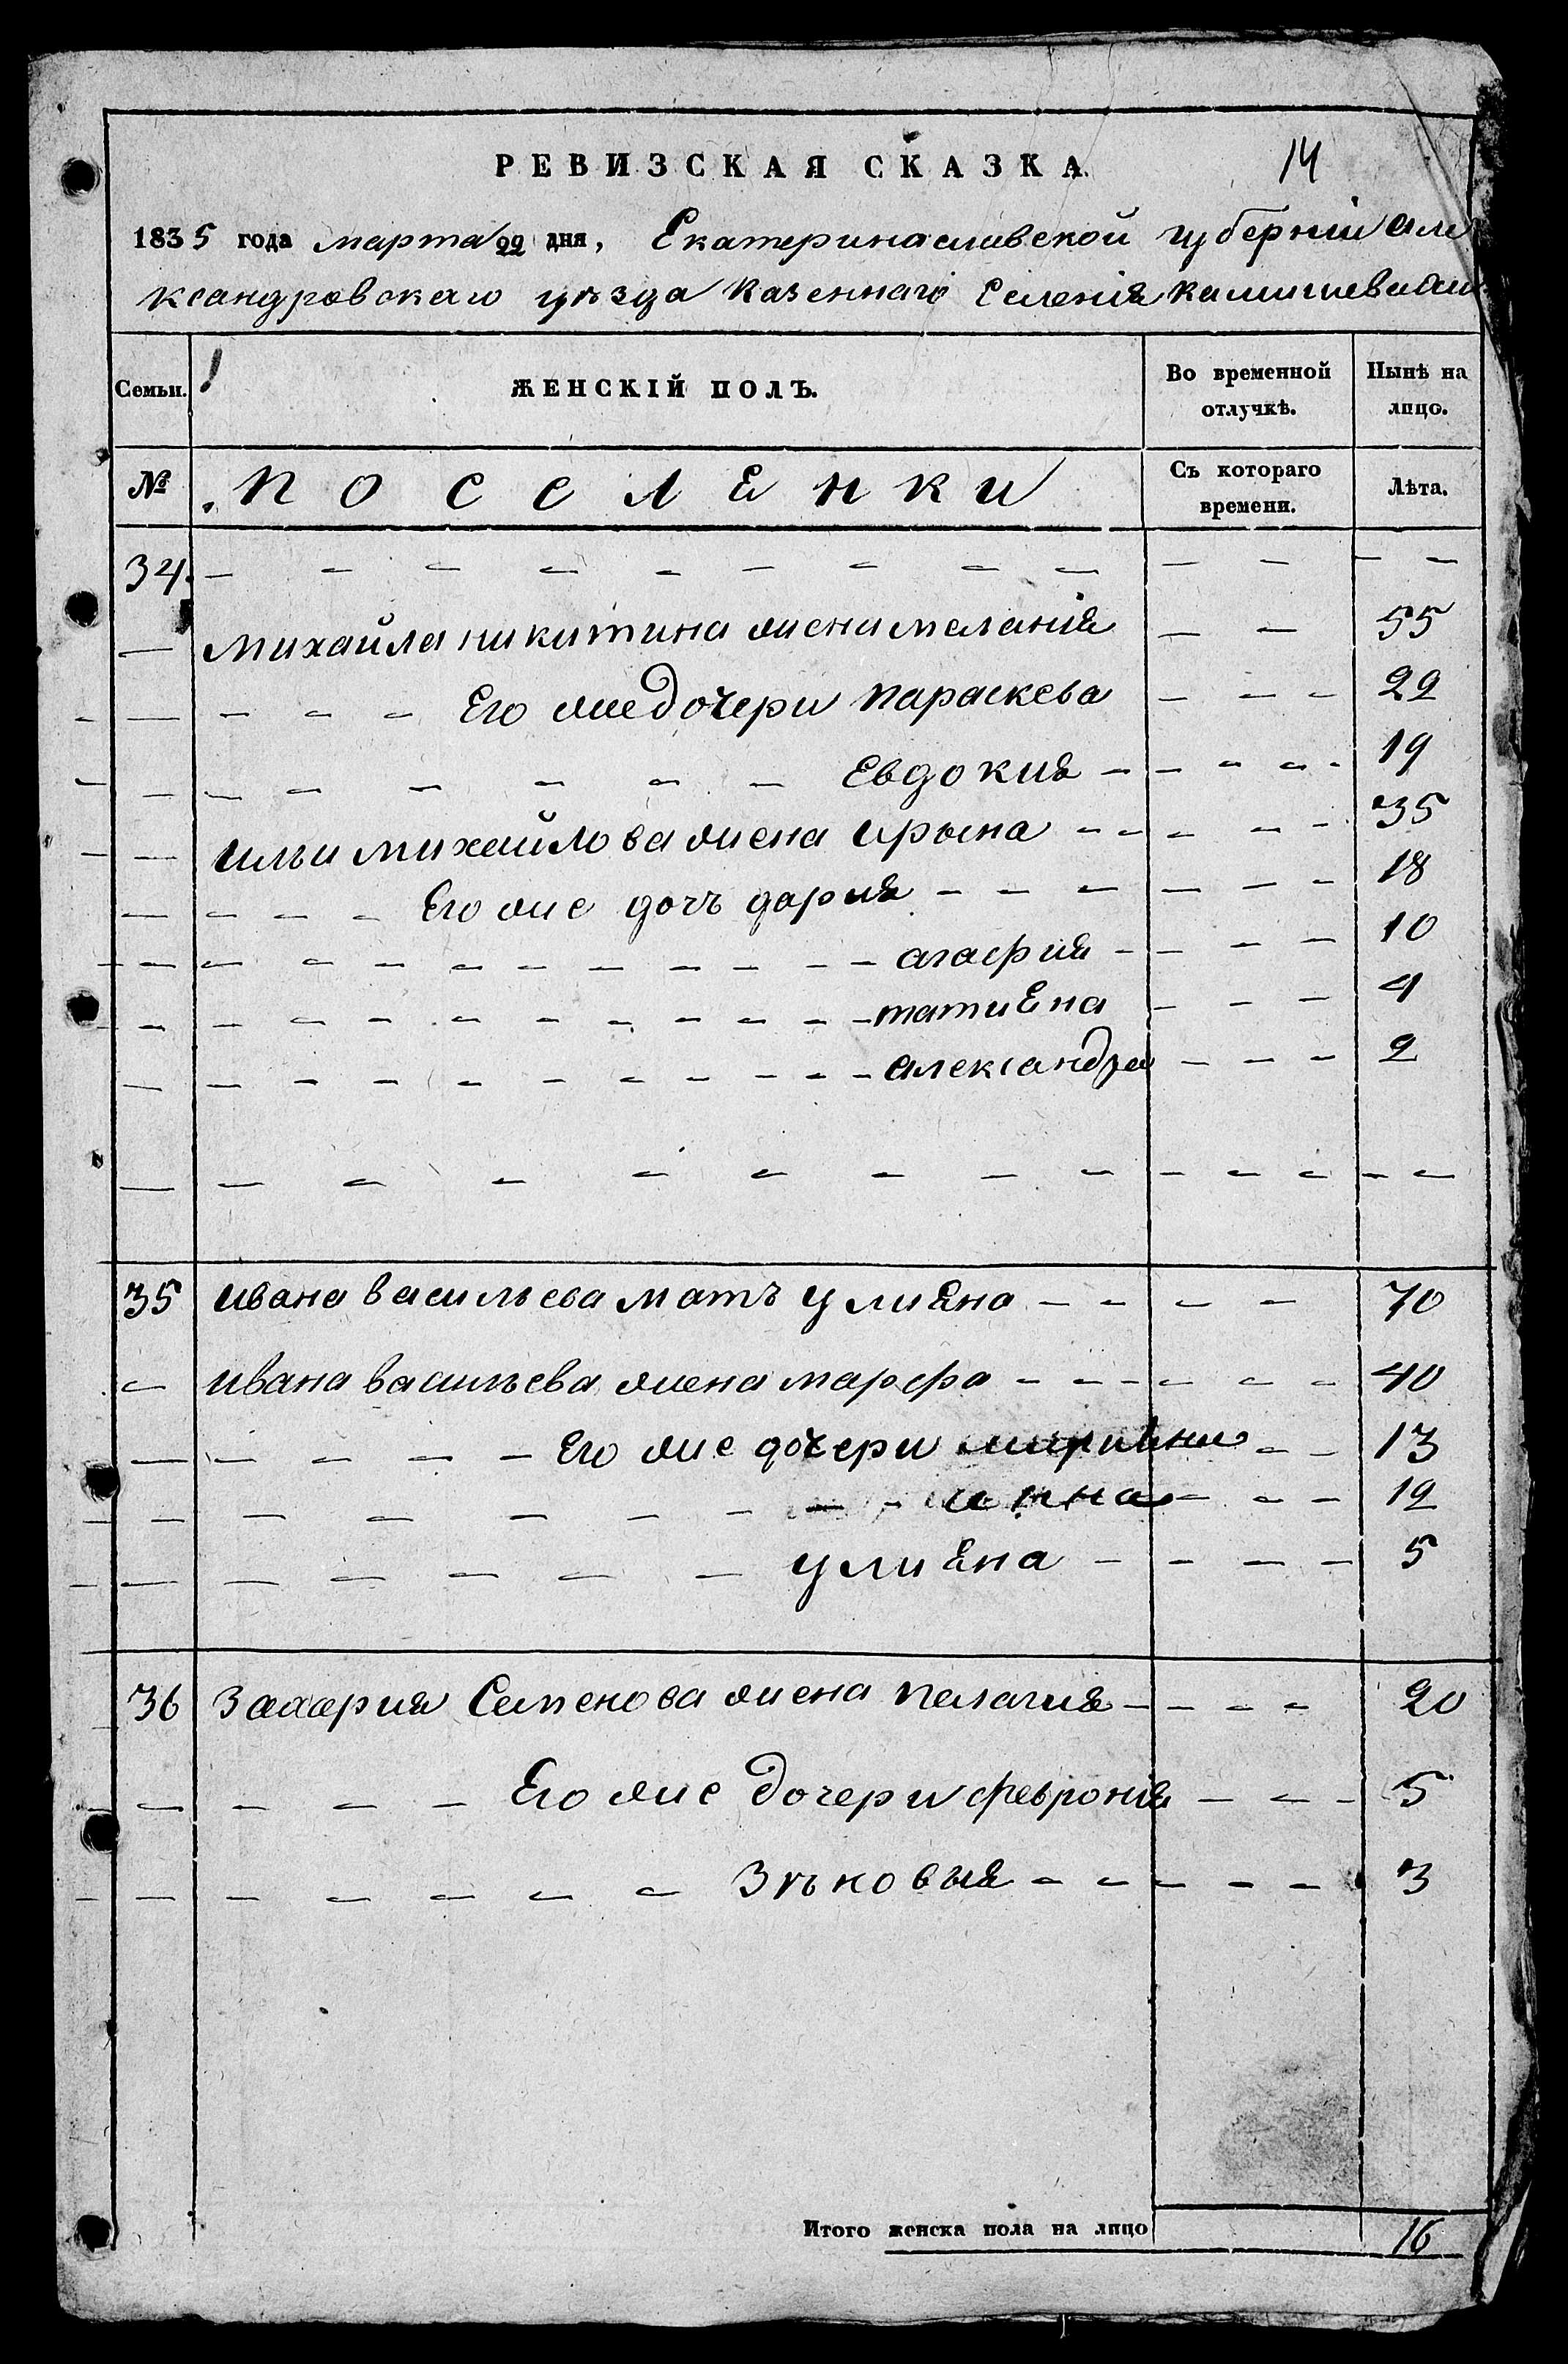 РЕВИЗСКАЯ СКАЗКА.
14
1835 года марта 22 дня, Екатеринаславской губернии Але
ксандровского уѣзда Казеннаго Селения Камишевахи
Семьи. ЖЕНСКІЙ ПОЛЪ. Во временной отлучкѣ. Нынѣ на лицо.
№ ПОССЕЛЕНКИ Съ котораго времени. Лѣта.
34. — — — — — — — — —
— Михайла никитина жена меланія — — 55
— — — — Его же дочери параскева — — — 22
— — — — — — — Евдокия — — — — 19
— Ильи Михайлова жена Ирына — — — — — 35
— — — — Его же дочъ дария — — — — — — 18
— — — — — — — — — — агафия — — — — 10
— — — — — — — — — — татияна — — — 4
— — — — — — — — — — александра — — — 2
— — — — — — — — — — — — — —
35 Ивана васильева матъ улияна — — — — 70
— Ивана васильева жена марфа — — — — — — 40
— — — — — Его же дочери марияна — — 13
— — — — — — — анна — — — 12
— — — — — — улияна — — — — 5
36 Захария Семенова жена пелагия — — — — 20
— — — — Его же дочери февронія — — — 5
— — — — — — Зѣновыя — — — — — 3
Итого женска пола на лицо 16